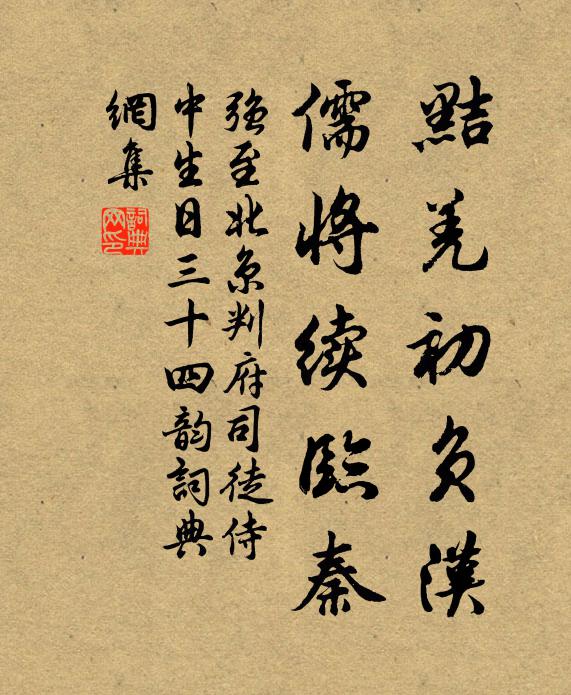 黠羌初負漢
儒將续臨秦
强至北京判府司徒侍
中生日三十四韵詞典
網集
詞典
网印